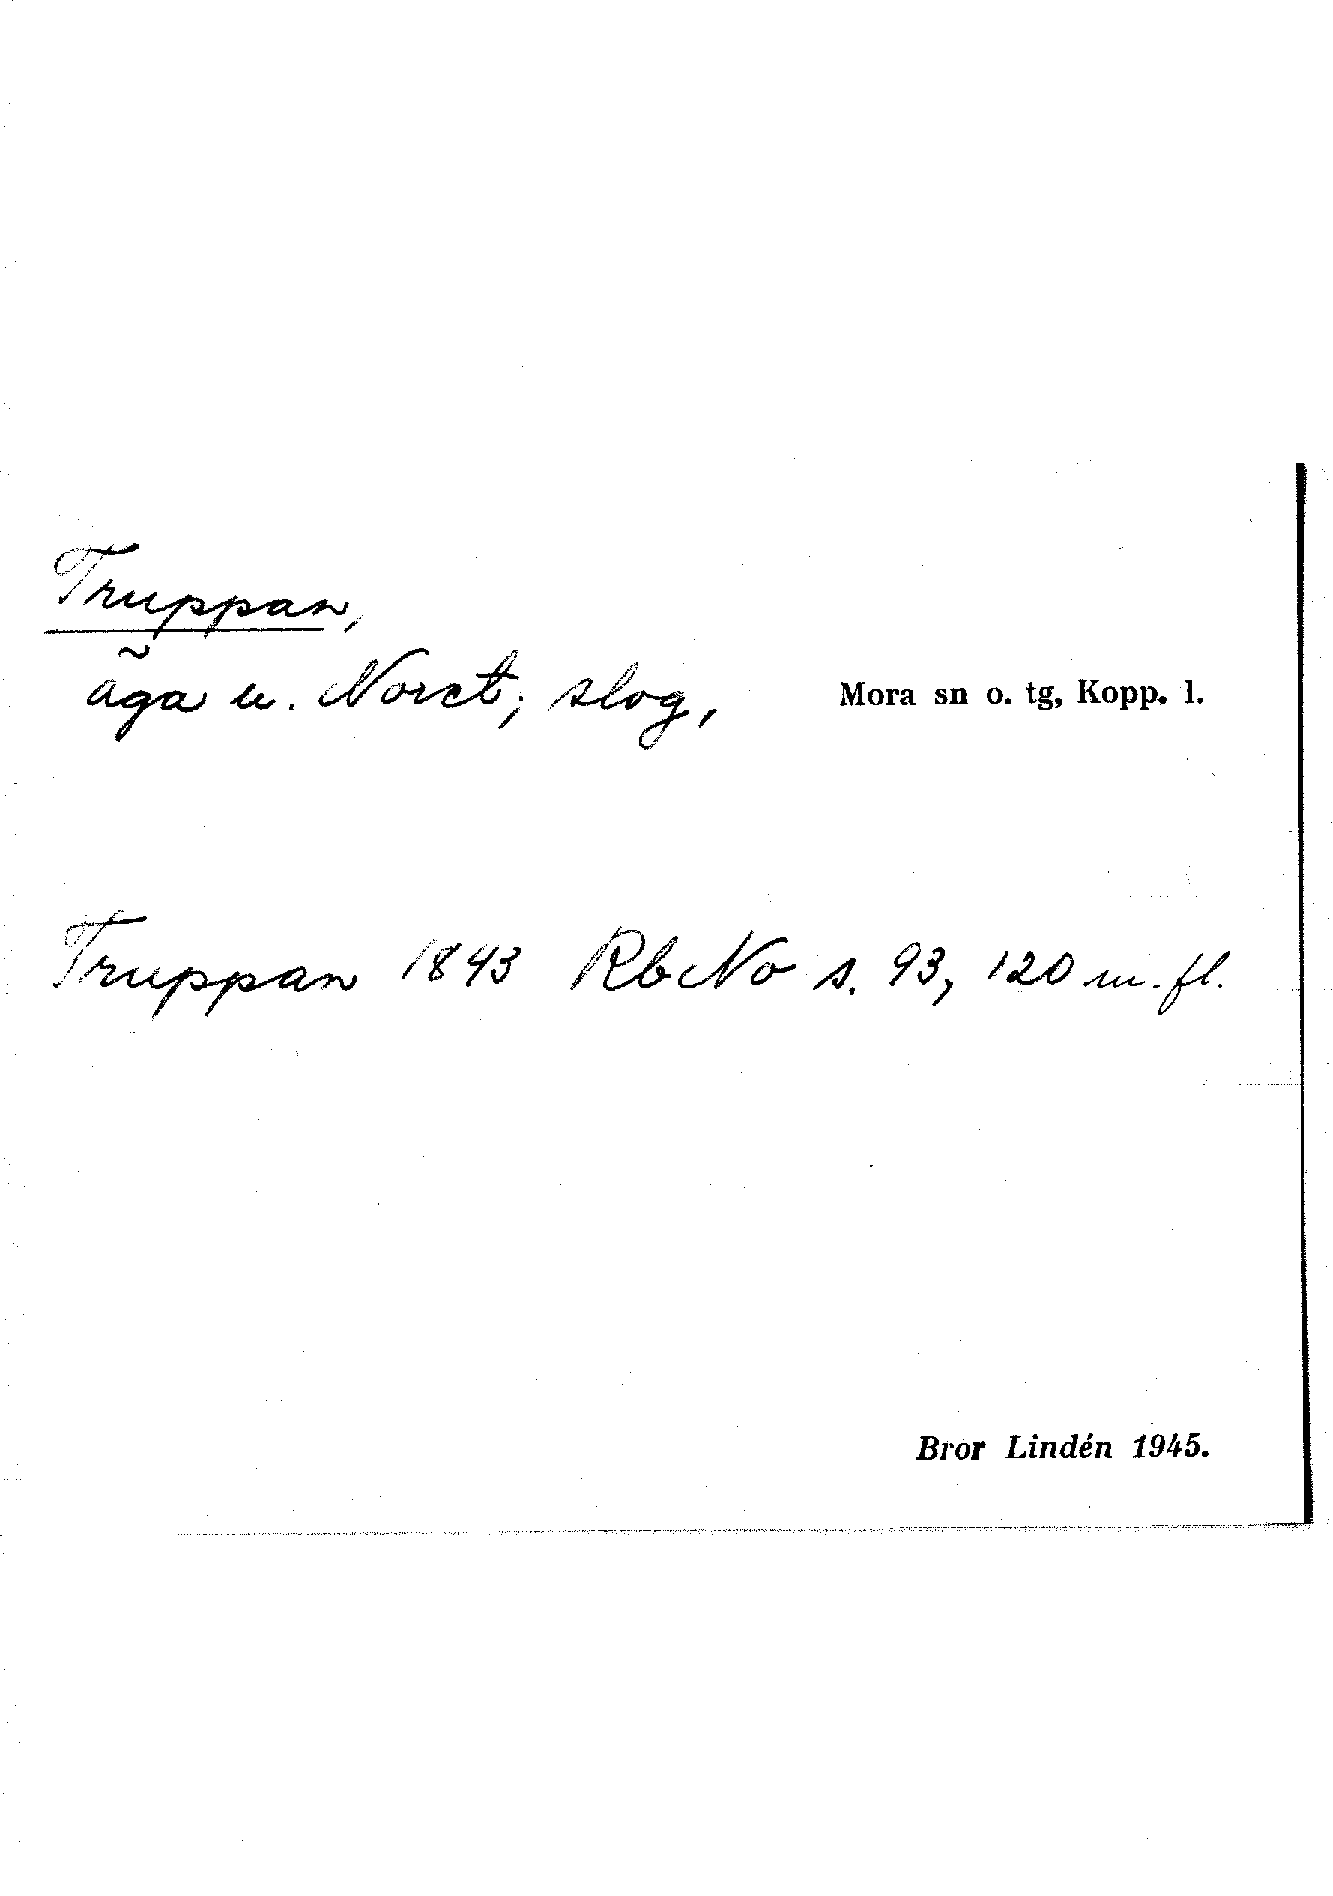 Truppan,
äga u. Noret; slog, Mora sn o. tg, Kopp. l.
Truppan 1843 RbNo s. 93, 120 m. fl.
Bror Lindén 1945.